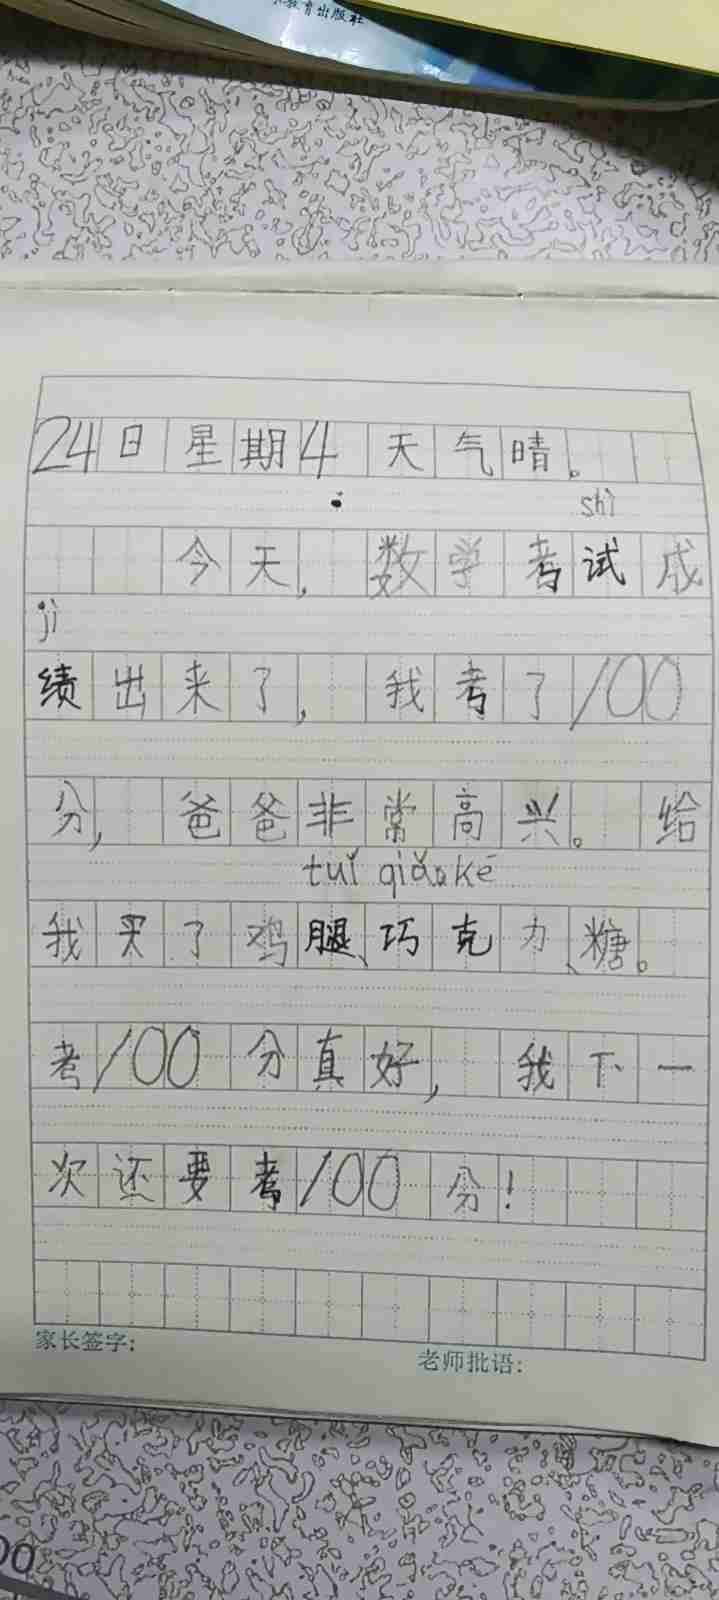 教育出版社
24日星期4 天气晴。
shì
今天，数学考试成
jì
绩出来了，我考了100
分，爸爸非常高兴。给
tuǐ qiǎokè
我买了鸡腿、巧克力、糖。
考100分真好，我下一
次还要考100分！
家长签字：
老师批语：